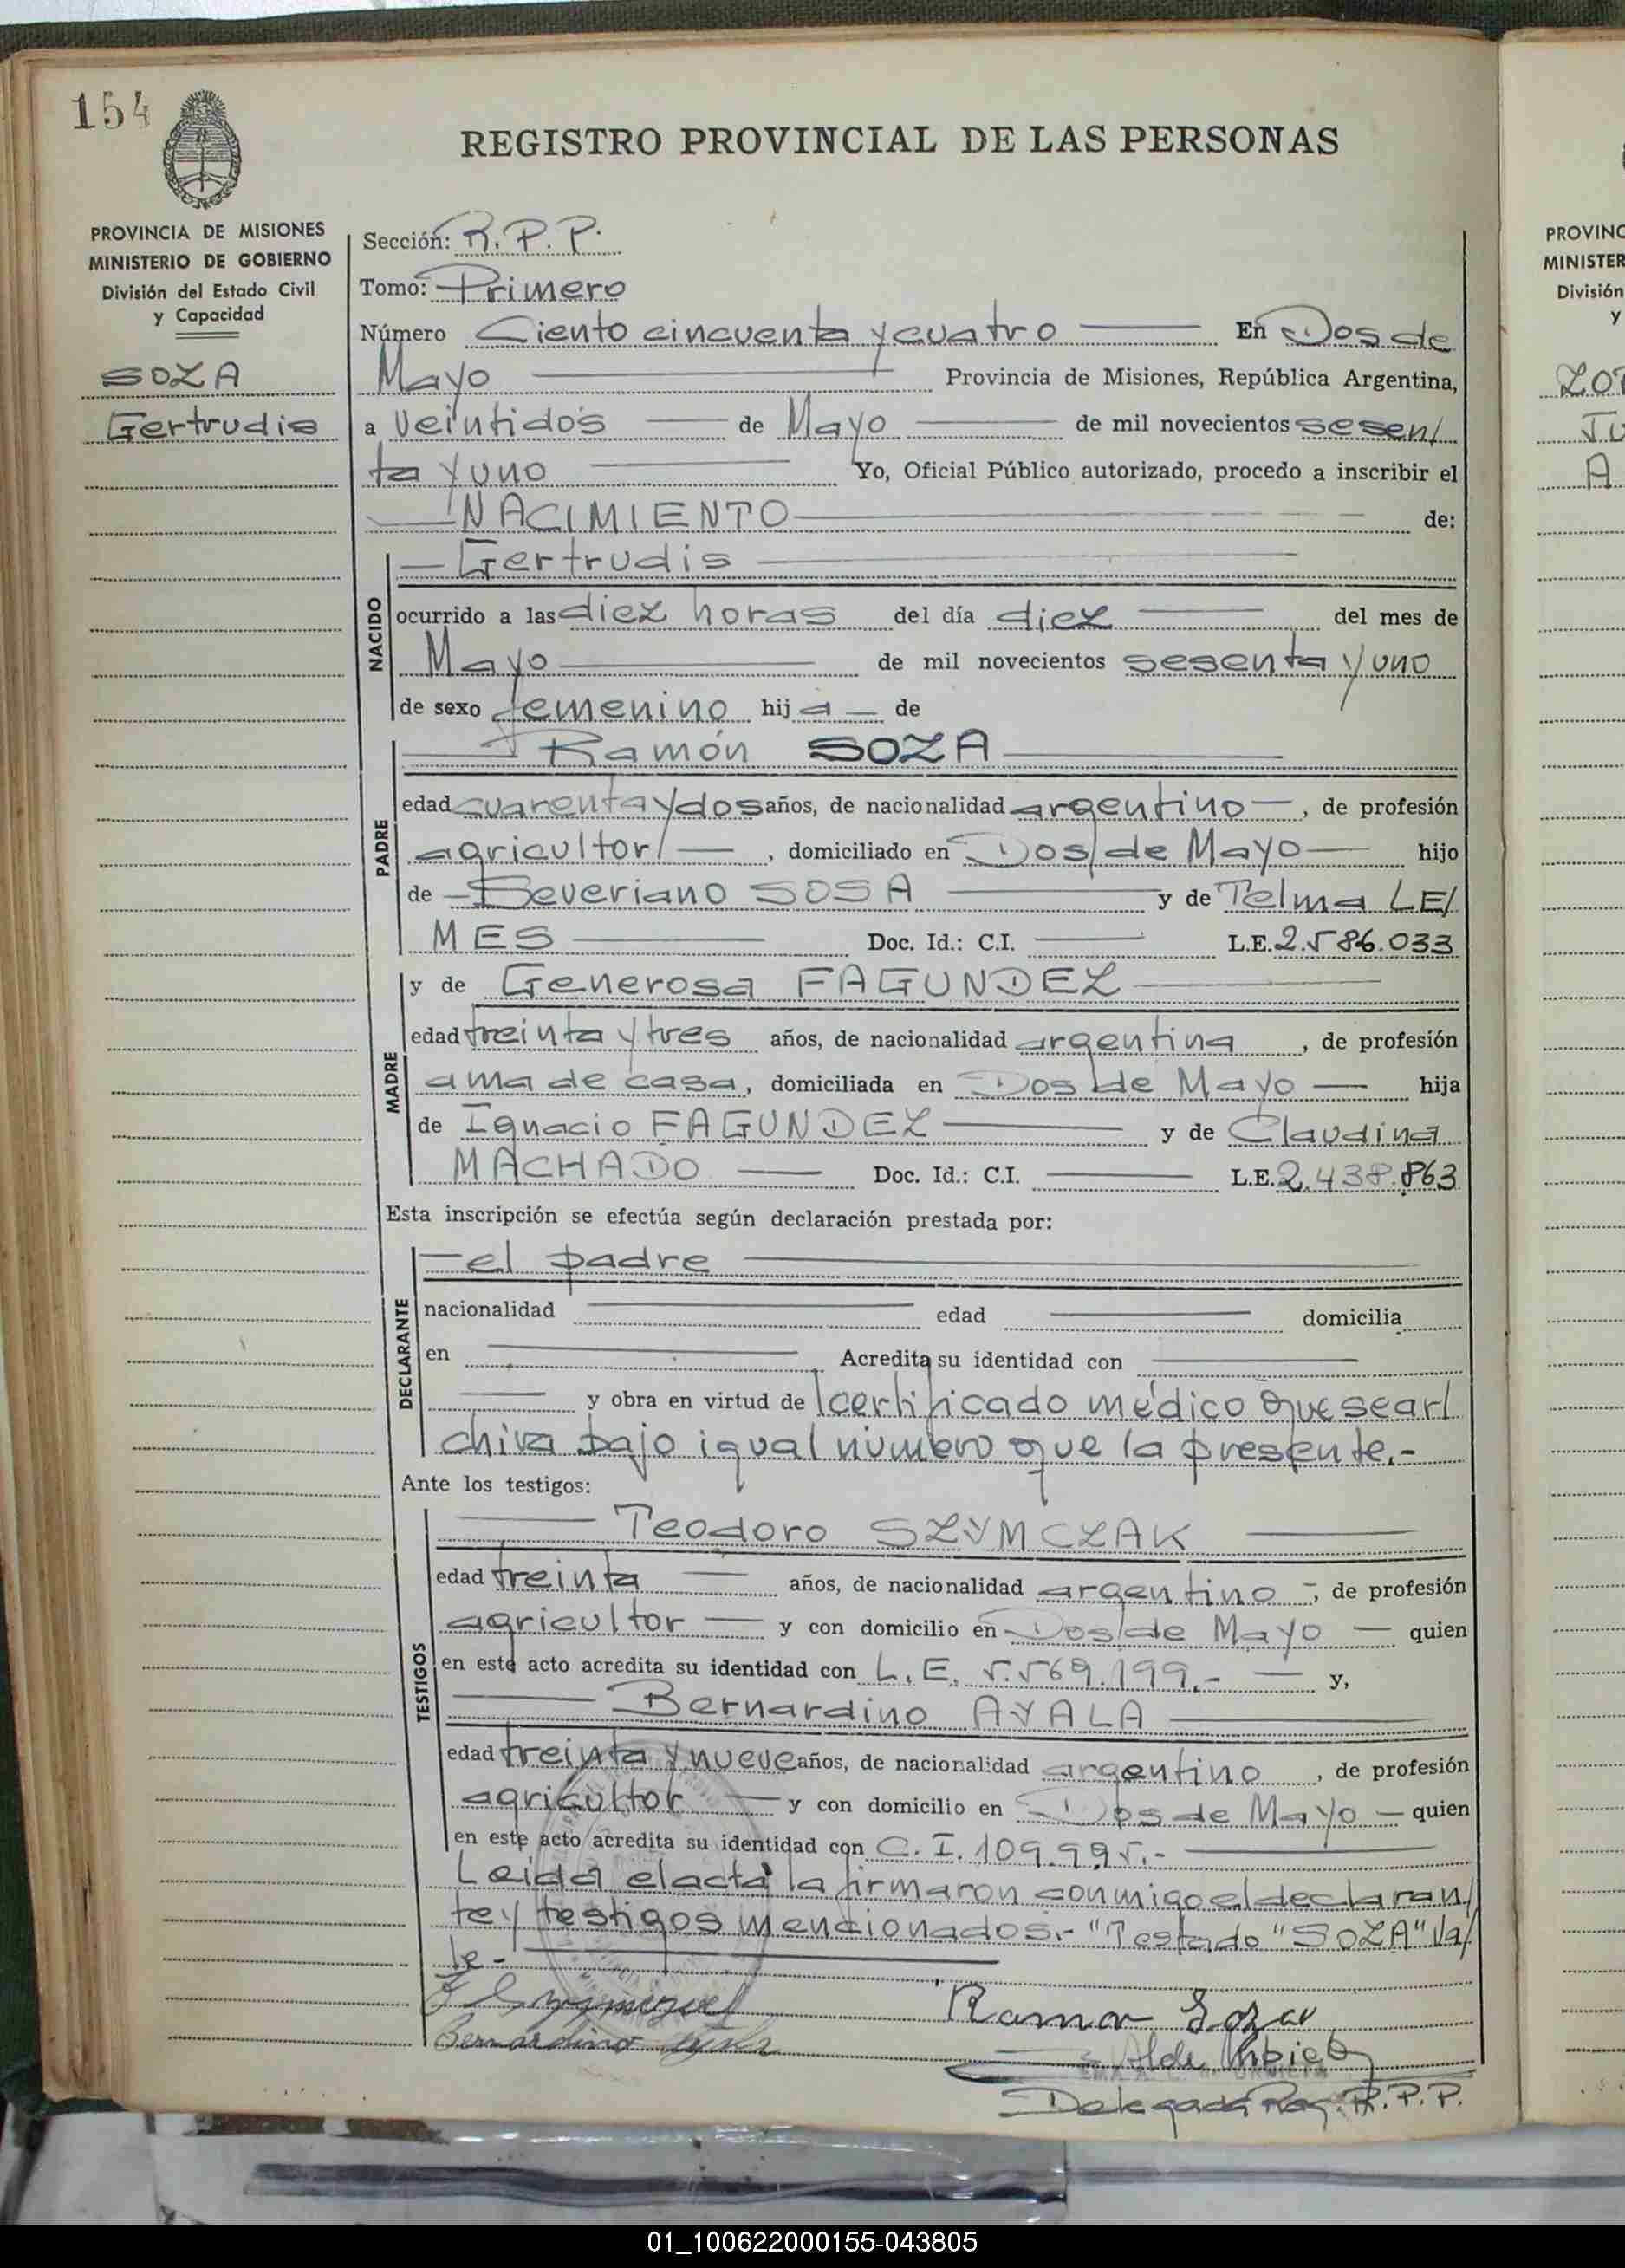 154
REGISTRO PROVINCIAL DE LAS PERSONAS
PROVINCIA DE MISIONES
MINISTERIO DE GOBIERNO
División del Estado Civil
y Capacidad
SOZA
Gertrudis
Sección: R. P. P.
Tomo: Primero
Número Ciento cincuenta y cuatro En Dos de
Mayo Provincia de Misiones, República Argentina,
a veintidós de Mayo de mil novecientos sesen/
ta y uno Yo, Oficial Público autorizado, procedo a inscribir el
NACIMIENTO de:
NACIDO
Gertrudis
ocurrido a las diez horas del día diez del mes de
Mayo de mil novecientos sesenta y uno
de sexo femenino hija de
PADRE
Ramón SOZA
edad cuarenta y dos años, de nacionalidad argentino, de profesión
agricultor, domiciliado en Dos de Mayo hijo
de Severiano SOSA y de Telma LE/
MES Doc. Id.: C.I. L.E. 2.586.033
MADRE
y de Generosa FAGUNDEZ
edad treinta y tres años, de nacionalidad argentina, de profesión
ama de casa, domiciliada en Dos de Mayo hija
de Ignacio FAGUNDEZ y de Claudina
MACHADO Doc. Id.: C.I. L.E. 2.438.863
Esta inscripción se efectúa según declaración prestada por:
DECLARANTE
el padre
nacionalidad edad domicilia
en Acredita su identidad con
y obra en virtud de certificado médico que se ar/
chiva bajo igual número que la presente.-
Ante los testigos:
TESTIGOS
Teodoro SZYMCZAK
edad treinta años, de nacionalidad argentino, de profesión
agricultor y con domicilio en Dos de Mayo quien
en este acto acredita su identidad con L. E. 5.569.199.- y,
Bernardino AYALA
edad treinta y nueve años, de nacionalidad argentino, de profesión
agricultor y con domicilio en Dos de Mayo quien
en este acto acredita su identidad con C. I. 109.995.-
Leida el acta la firmaron conmigo el declaran/
te y testigos mencionados.- "Testado "SOZA" Va/
le.-
Ramon Soza
Bernardino
Delegada R. P. P.
PROVINC
MINISTER
División
y
01_100622000155-043805